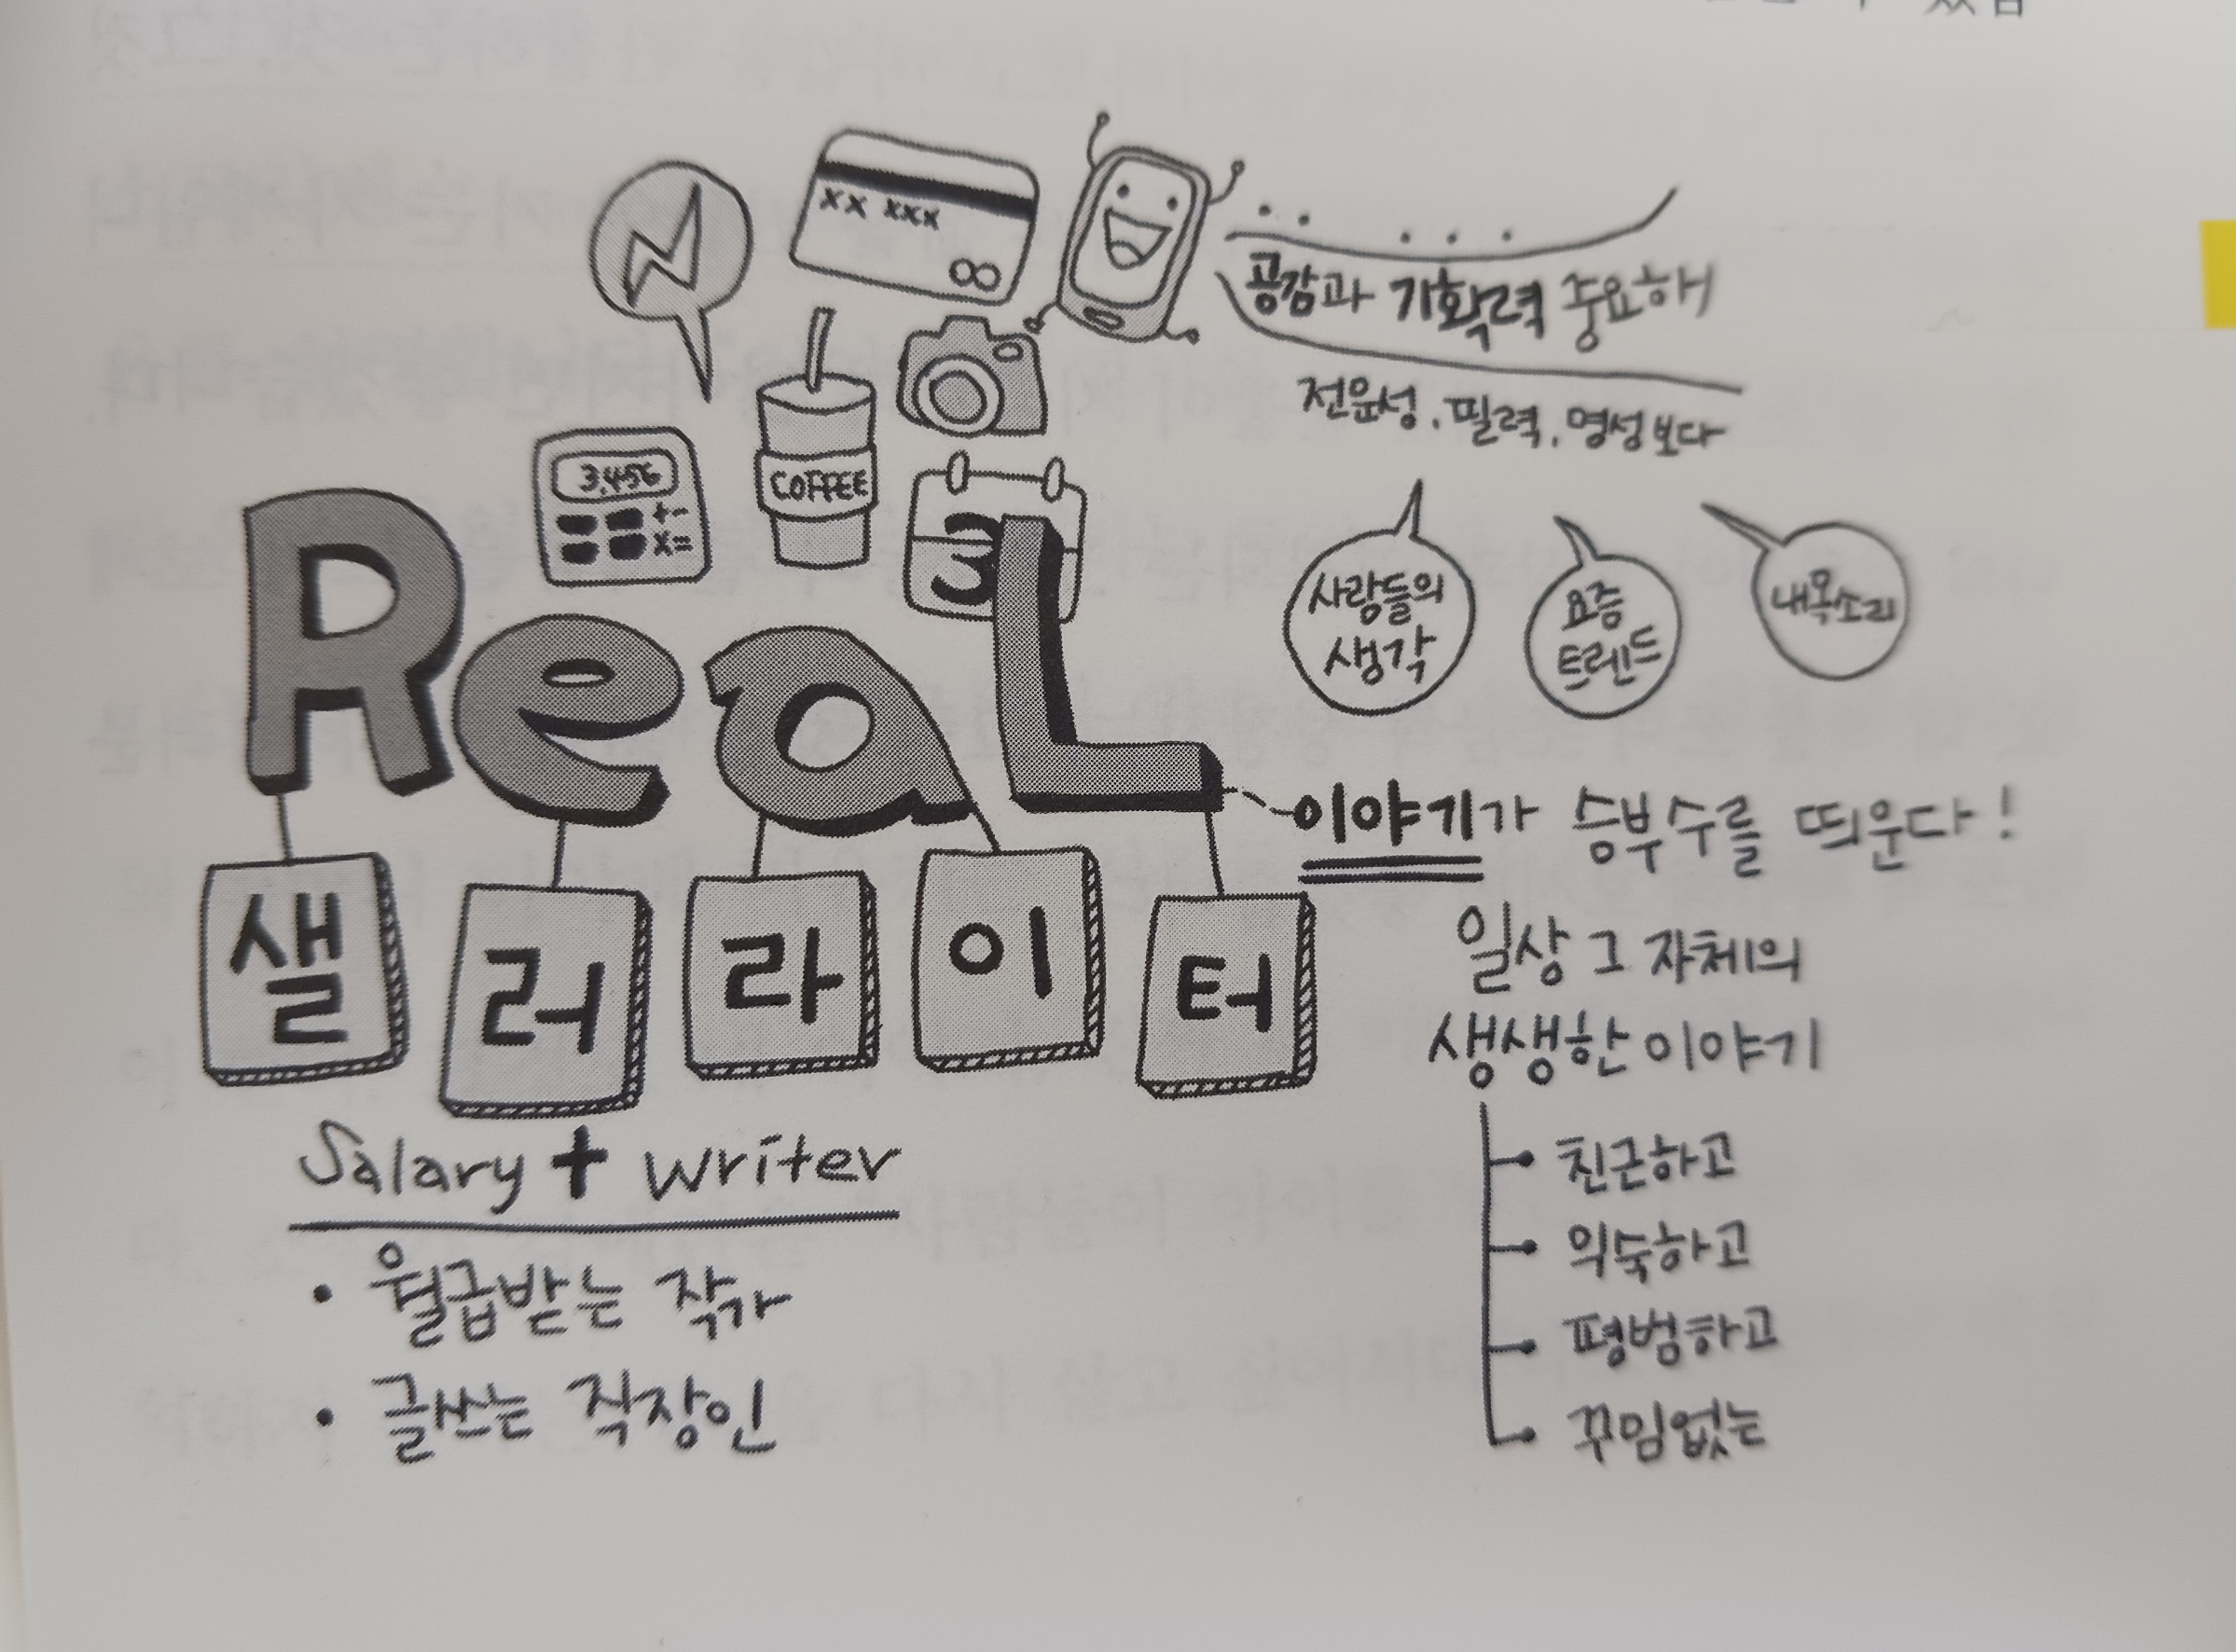 xx xxx
공감과 기획력 중요해
전문성. 필력. 명성보다
3,456
+-
x=
COFFEE
3
사람들의
생각
요즘
트렌드
내목소리
ReaL
이야기가 승부수를 띄운다!
샐러라이터
일상 그 자체의
생생한 이야기
Salary + writer
친근하고
• 월급받는 작가
익숙하고
평범하고
• 글쓰는 직장인
꾸밈없는